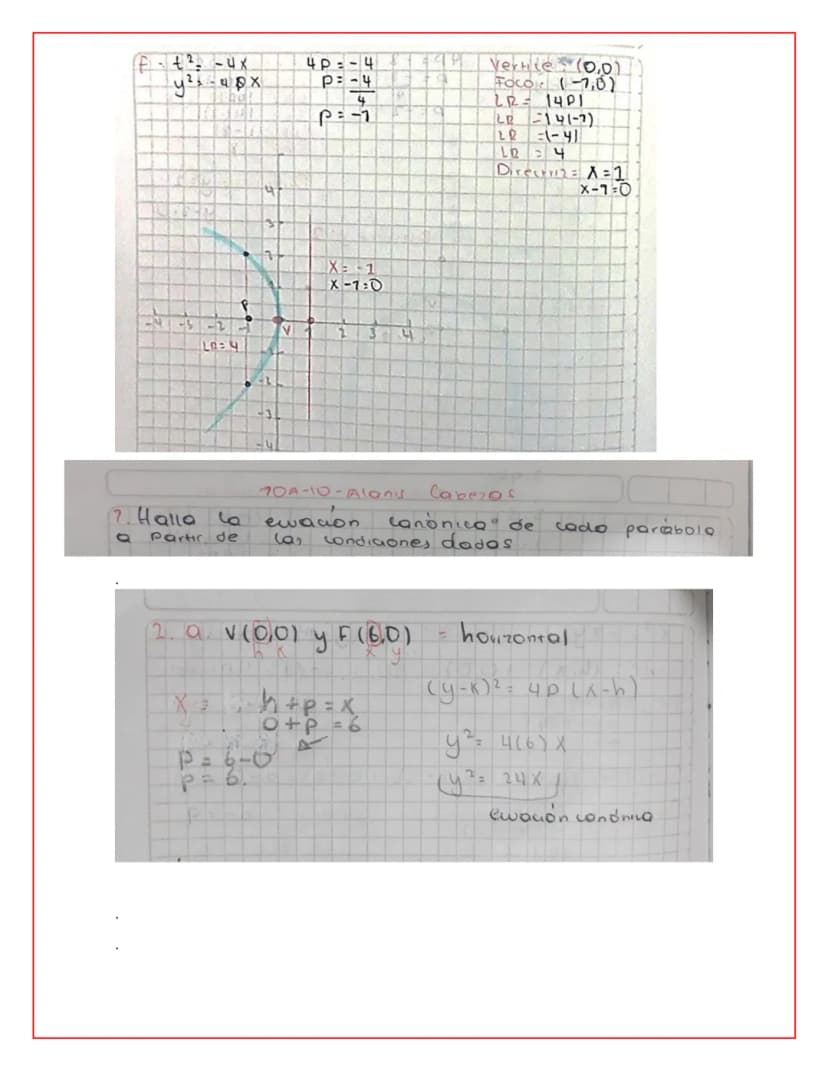 f. t² = -4x
y² = -4px
4p = -4
p = -4
4
p = -1
Vertice: (0,0)
Foco: (-1,0)
LR = |4p|
LR = |4(-1)
LR = |-4|
LR = 4
Directriz = x = 1
x-1=0
4
3
2
1
x = -1
x -1 = 0
P
-4 -3 -2 -1 V 1 2 3 4
LR = 4
-1
-2
-3
-4
10A-10-Alanis Cabezas
2. Halla la ecuación canónica de cada parábola
a partir de las condiciones dadas
.
2. a. V(0,0) y F(6,0) = horizontal
h k x y
(y-k)² = 4p(x-h)
x = h + p = x
0 + p = 6
y² = 4(6)x
p = 6-0
p = 6.
y² = 24x
ecuación canónica
.
.